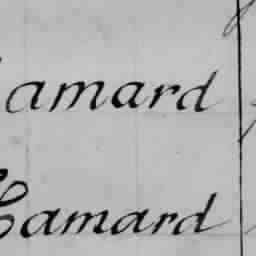 amard
Hamard